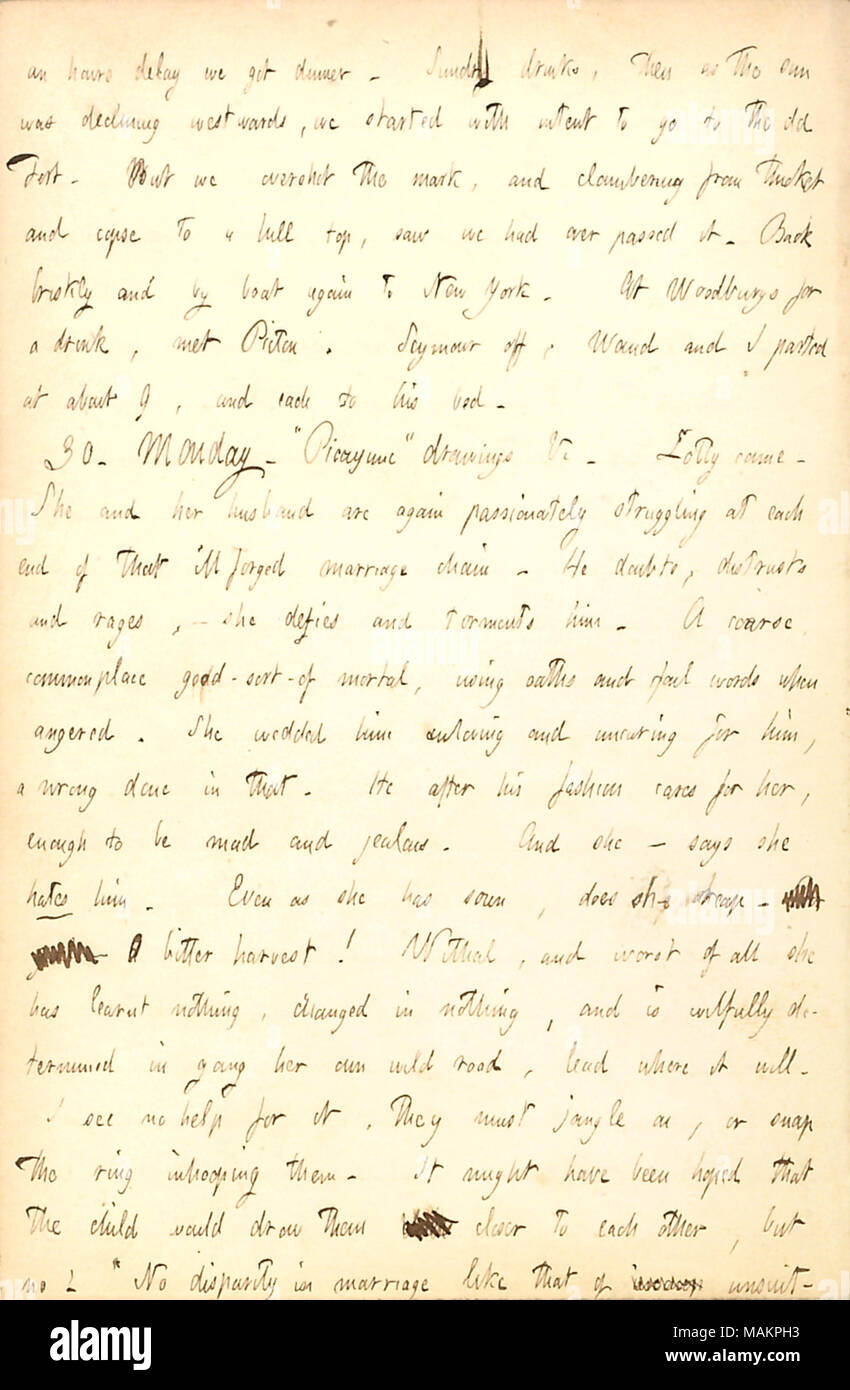 an hours delay we got dinner - Sundry drinks, then as the sun
was declining westwards, we started with intent to go to the old
Fort - But we overshot the mark, and clambering from thicket
and copse to a hill top, saw we had over passed it - Back
briskly and by boat again to New York - At Woodburys for
a drink, met Picton. Seymour off, Waud and I parted
at about 9, and each to his bed -
30 - Monday - "Picayune" drawings &c - Lotty came -
She and her husband are again passionately struggling at each
end of that ill forged marriage chain - He doubts, distrusts
and rages, - she defies and torments him - A coarse
commonplace good-sort-of mortal, using oaths and foul words when
angered. She wedded him unloving and uncaring for him,
a wrong done in that - He after his fashion cares for her,
enough to be mad and jealous - And she - says she
hates him - Even as she has sown, does she reap -
A bitter harvest! Withal, and worst of all she
has learnt nothing, changed in nothing, and is wilfully de-
termined in going her own wild road, lead where it will -
I see no help for it, they must jangle on, or snap
the ring inhooping them - It might have been hoped that
the child would draw them closer to each other, but
no! "No disparity in marriage like that of unsuit-
alamy
Image ID: MAKPH3
www.alamy.com